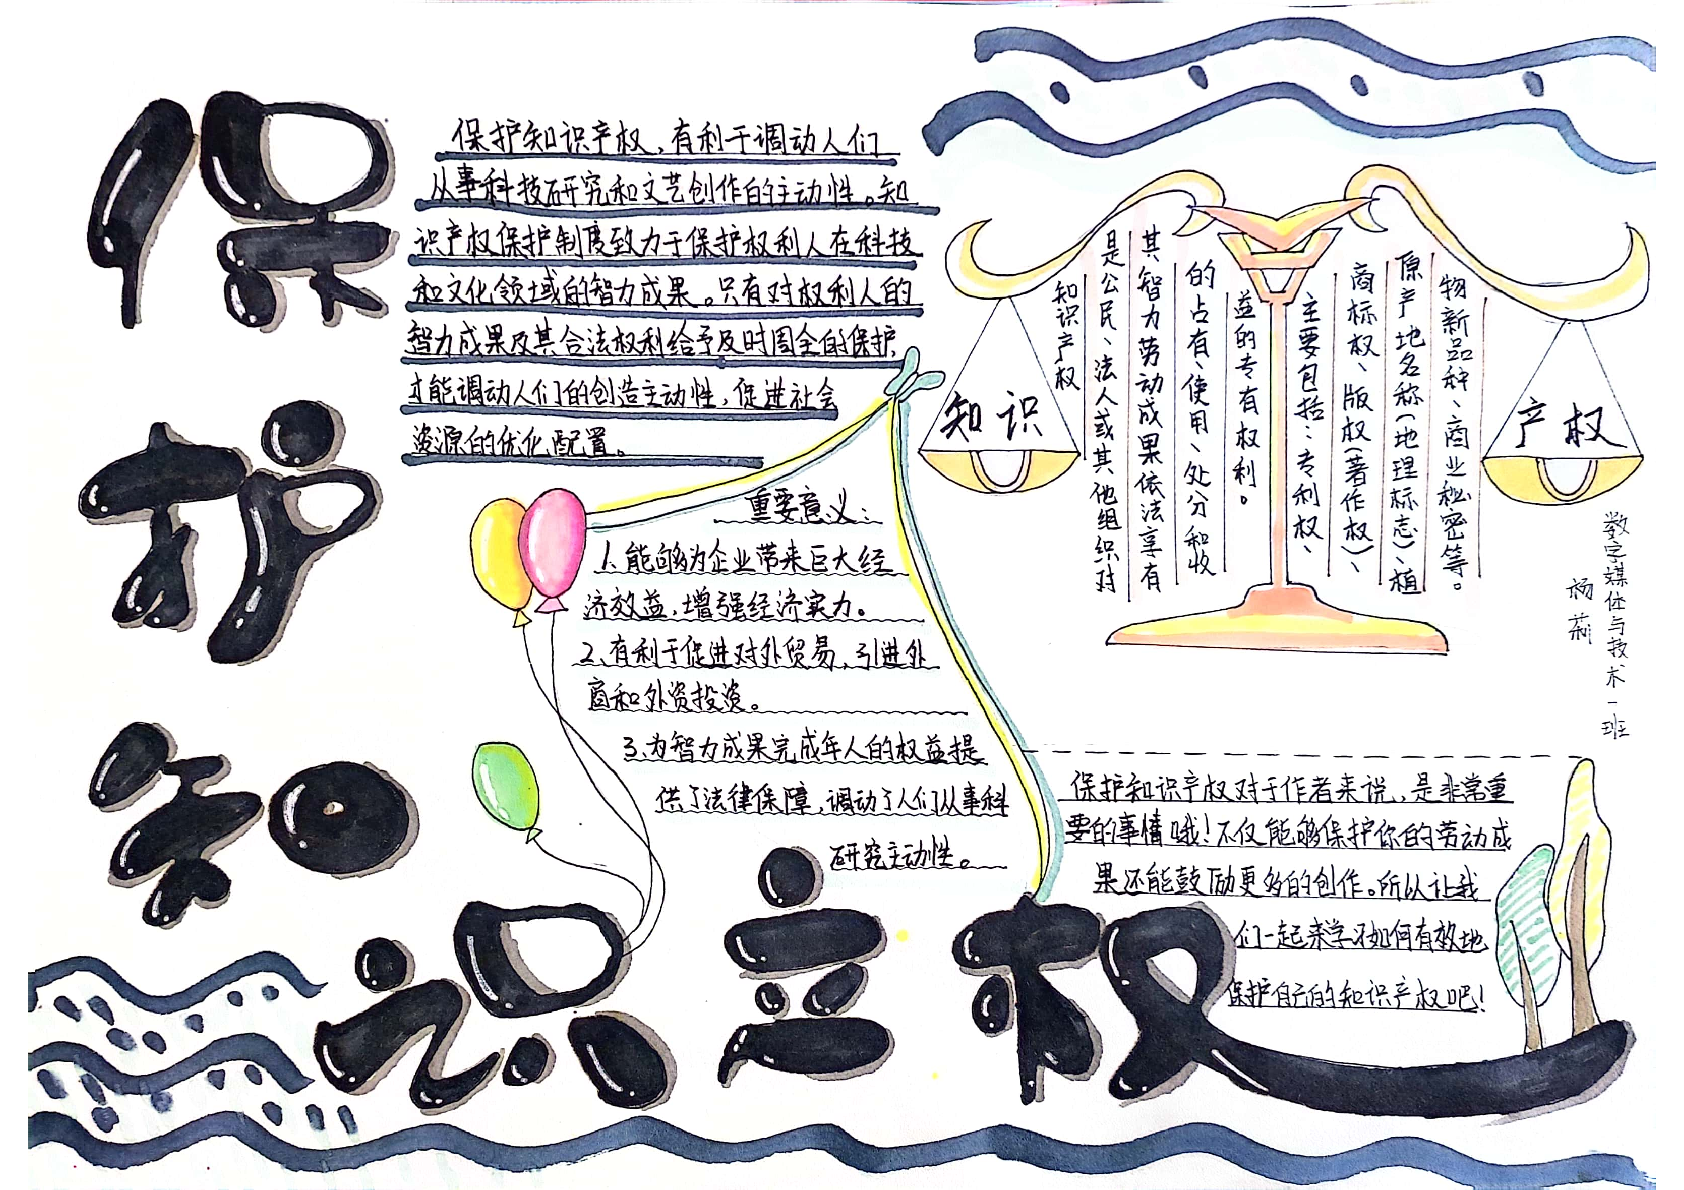 保护知识产权
保护知识产权，有利于调动人们
从事科技研究和文艺创作的主动性。知
识产权保护制度致力于保护权利人在科技
和文化领域的智力成果。只有对权利人的
智力成果及其合法权利给予及时周全的保护，
才能调动人们的创造主动性，促进社会
资源的优化配置。
重要意义：
1、能够为企业带来巨大经
济效益，增强经济实力。
2、有利于促进对外贸易，引进外
商和外资投资。
3、为智力成果完成年人的权益提
供了法律保障，调动了人们从事科
研究主动性。
知识
产权
知识产权
是公民、法人或其他组织对
其智力劳动成果依法享有
的占有、使用、处分和收
益的专有权利。
主要包括：专利权、
商标权、版权（著作权）、
原产地名称（地理标志）、植
物新品种、商业秘密等。
数字媒体与技术一班
杨莉
保护知识产权对于作者来说，是非常重
要的事情哦！不仅能够保护你的劳动成
果还能鼓励更多的创作。所以让我
们一起来学习如何有效地
保护自己的知识产权吧！